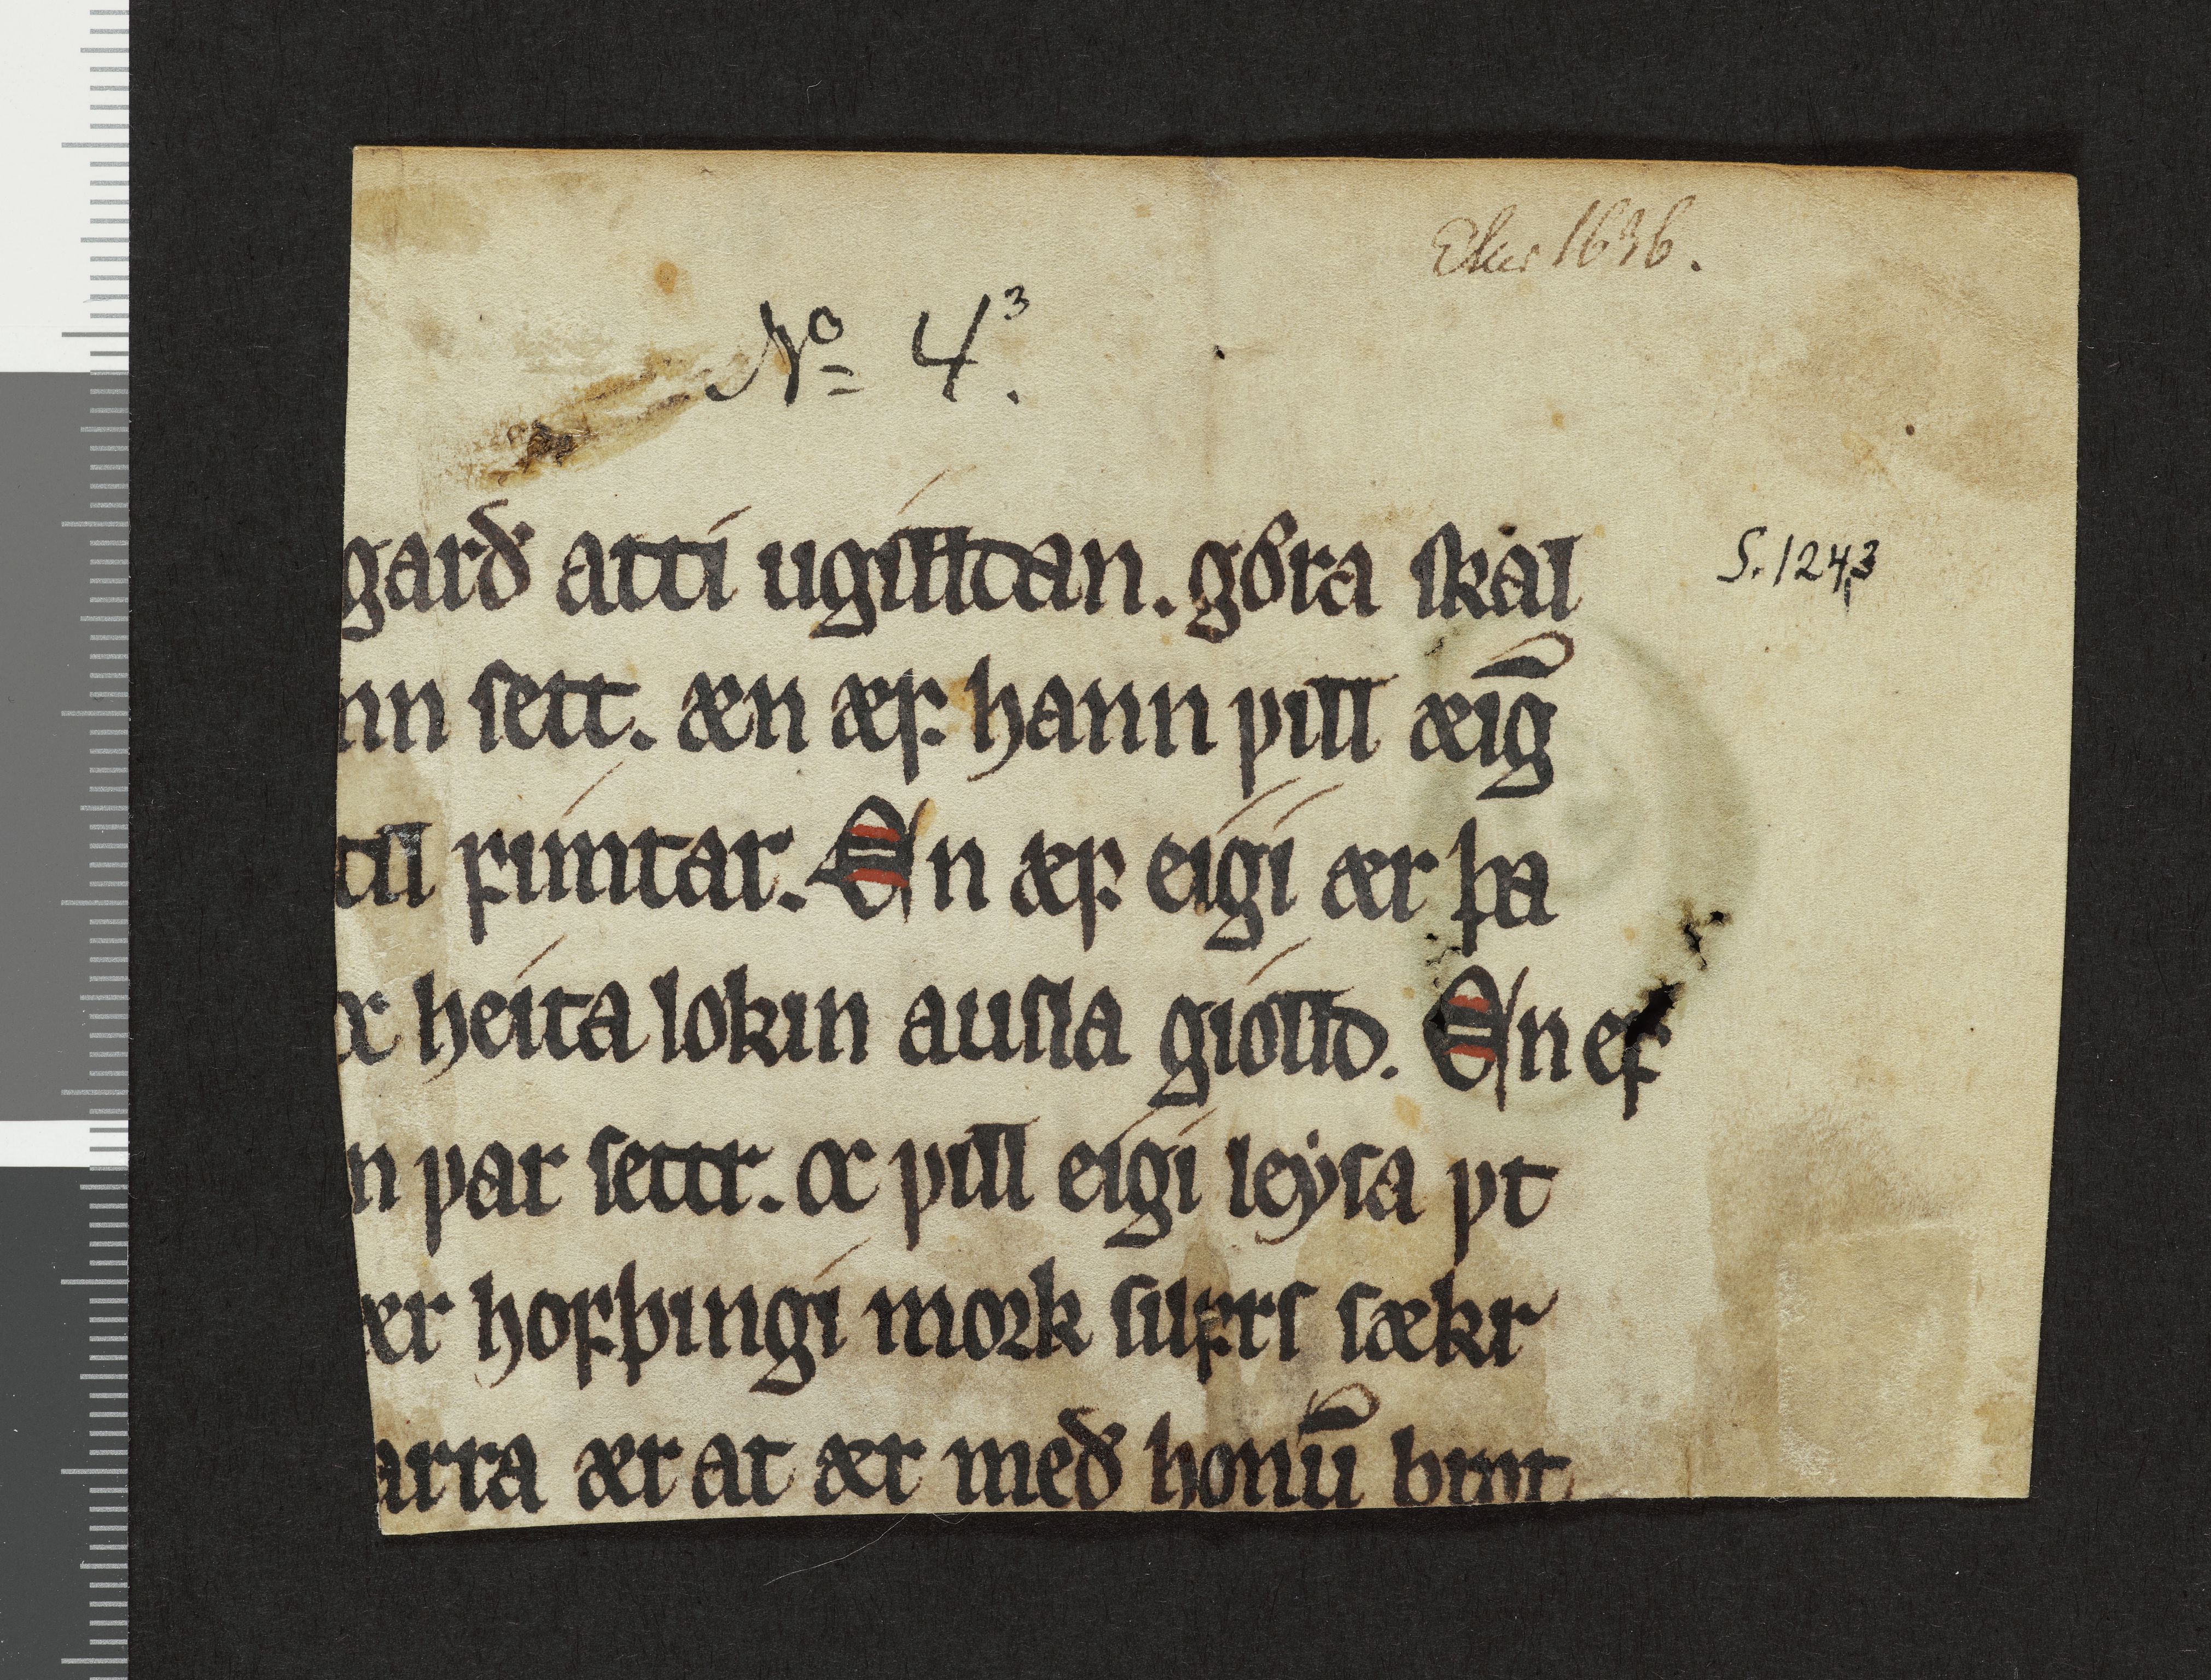 Eker 1636.
Nº 4³.
garð atti ugilldan. gǒra skal
S. 124,3
nn sett. æn æf hann vill æig̅
till fimtar. En æf eigi ær þa
oc heita lokin ausla giolld. En ef
n var settr. oc vill eigi leysa vt
ær hofþingi mork silfrs sækr
arra ær at ær með honu̅ brot